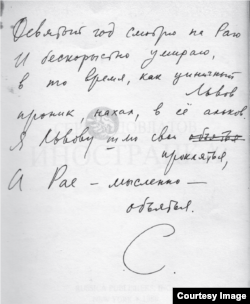 Девятый год смотрю на Раю
И бескорыстно умираю,
в то время, как циничный
Львов
проник, нахал, в её альков.
Я Львову шлю свои объятья
проклятья,
А Рае – мысленно –
объятья.
С.
Courtesy Image